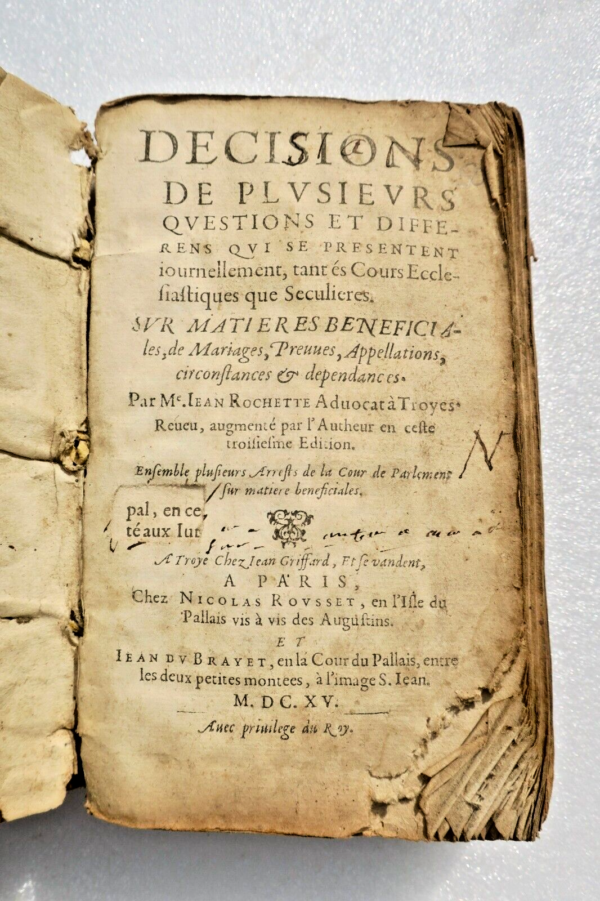 DECISIONS
DE PLVSIEVRS
QVESTIONS ET DIFFE-
RENS QVI SE PRESENTENT
iournellement, tant és Cours Eccle-
siastiques que Seculieres.
SVR MATIERES BENEFICIA-
les, de Mariages, Preuues, Appellations,
circonstances & dependances.
Par Me. IEAN ROCHETTE Aduocat à Troyes.
Reueu, augmenté par l'Autheur en ceste
troisiesme Edition.
Ensemble plusieurs Arrests de la Cour de Parlement
sur matiere beneficiales.
pal, en ce
té aux Iut
A Troye Chez Iean Griffard, Et se vandent,
A PARIS,
Chez NICOLAS ROVSSET, en l'Isle du
Pallais vis à vis des Augustins.
ET
IEAN DV BRAYET, en la Cour du Pallais, entre
les deux petites montees, à l'image S. Iean.
M. DC. XV.
Auec priuilege du Roy.